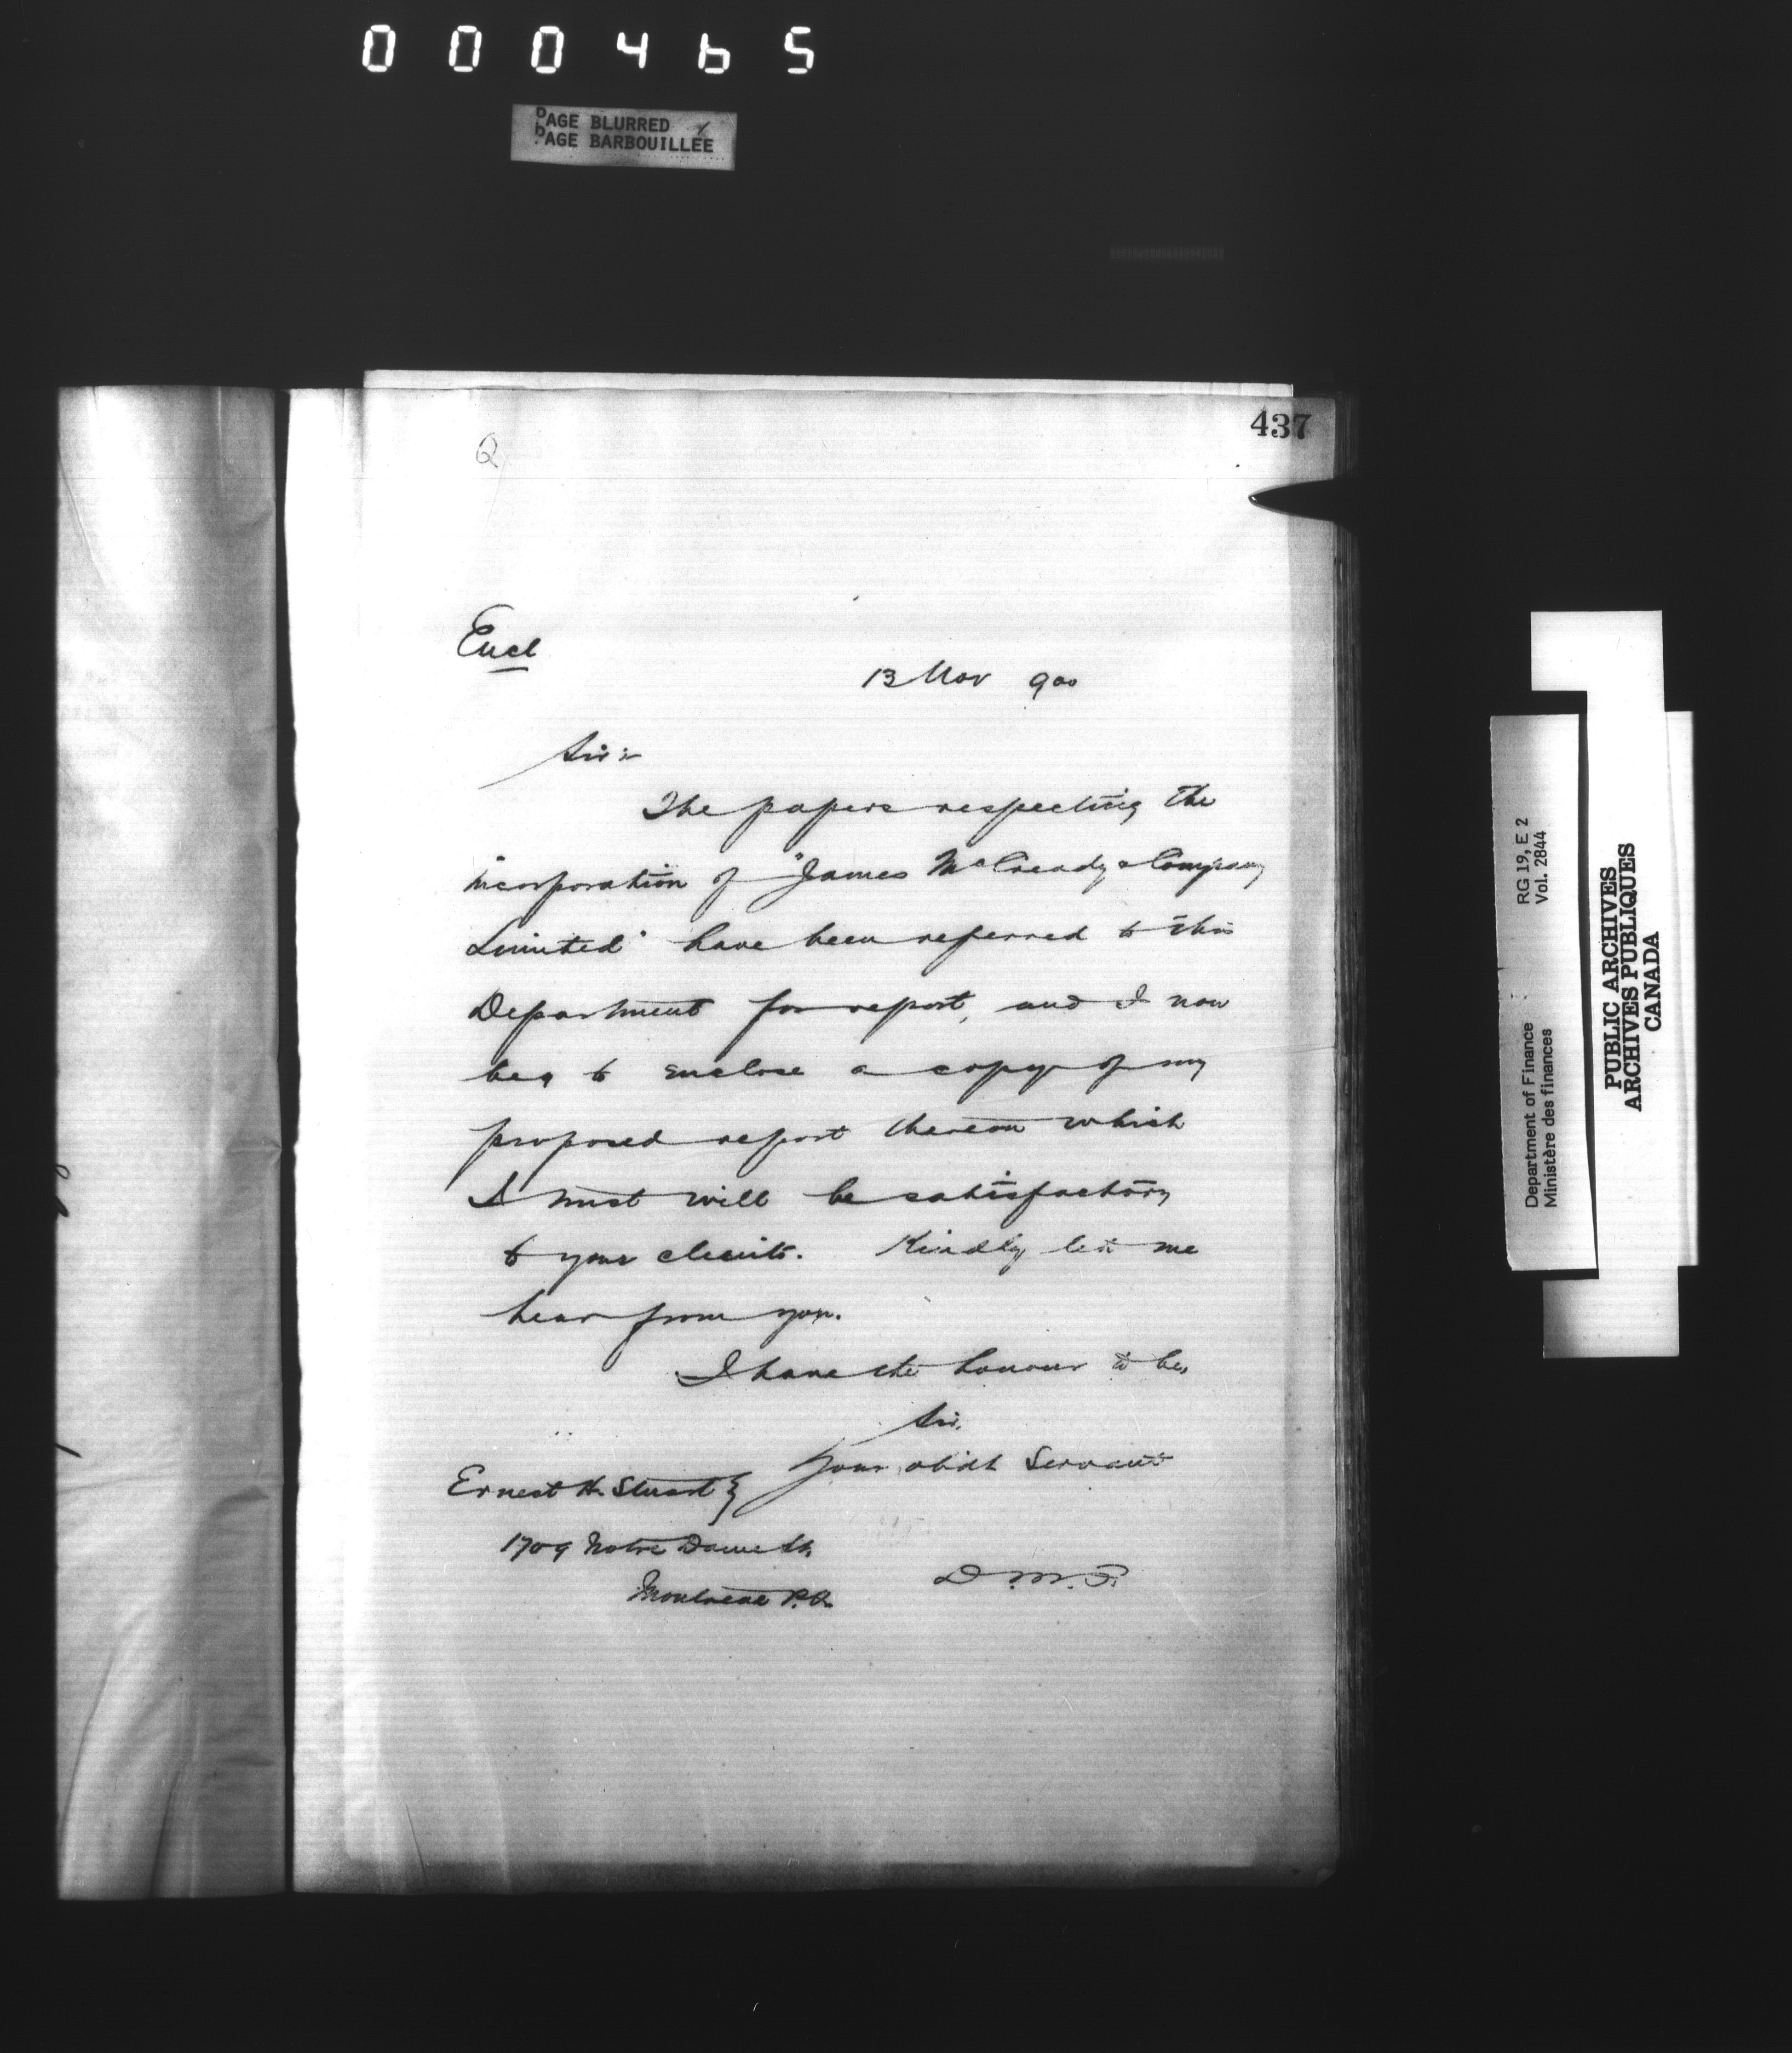 000465
PAGE BLURRED
PAGE BARBOUILLÉE
437
Q
Encl
13 Nov 900
Sir:-
The papers respecting the
incorporation of "James McCready & Company
Limited" have been referred to this
Department for report, and I now
beg to enclose a copy of my
proposed report thereon which
I trust will be satisfactory
to your clients. Kindly let me
hear from you.
I have the honour to be,
Sir,
Your obdt Servant
Ernest H. Stuart }
1709 Notre Dame St.
Montreal P.Q.
D.M.F.
RG 19, E 2
Vol. 2844
Department of Finance
Ministère des finances
PUBLIC ARCHIVES
ARCHIVES PUBLIQUES
CANADA